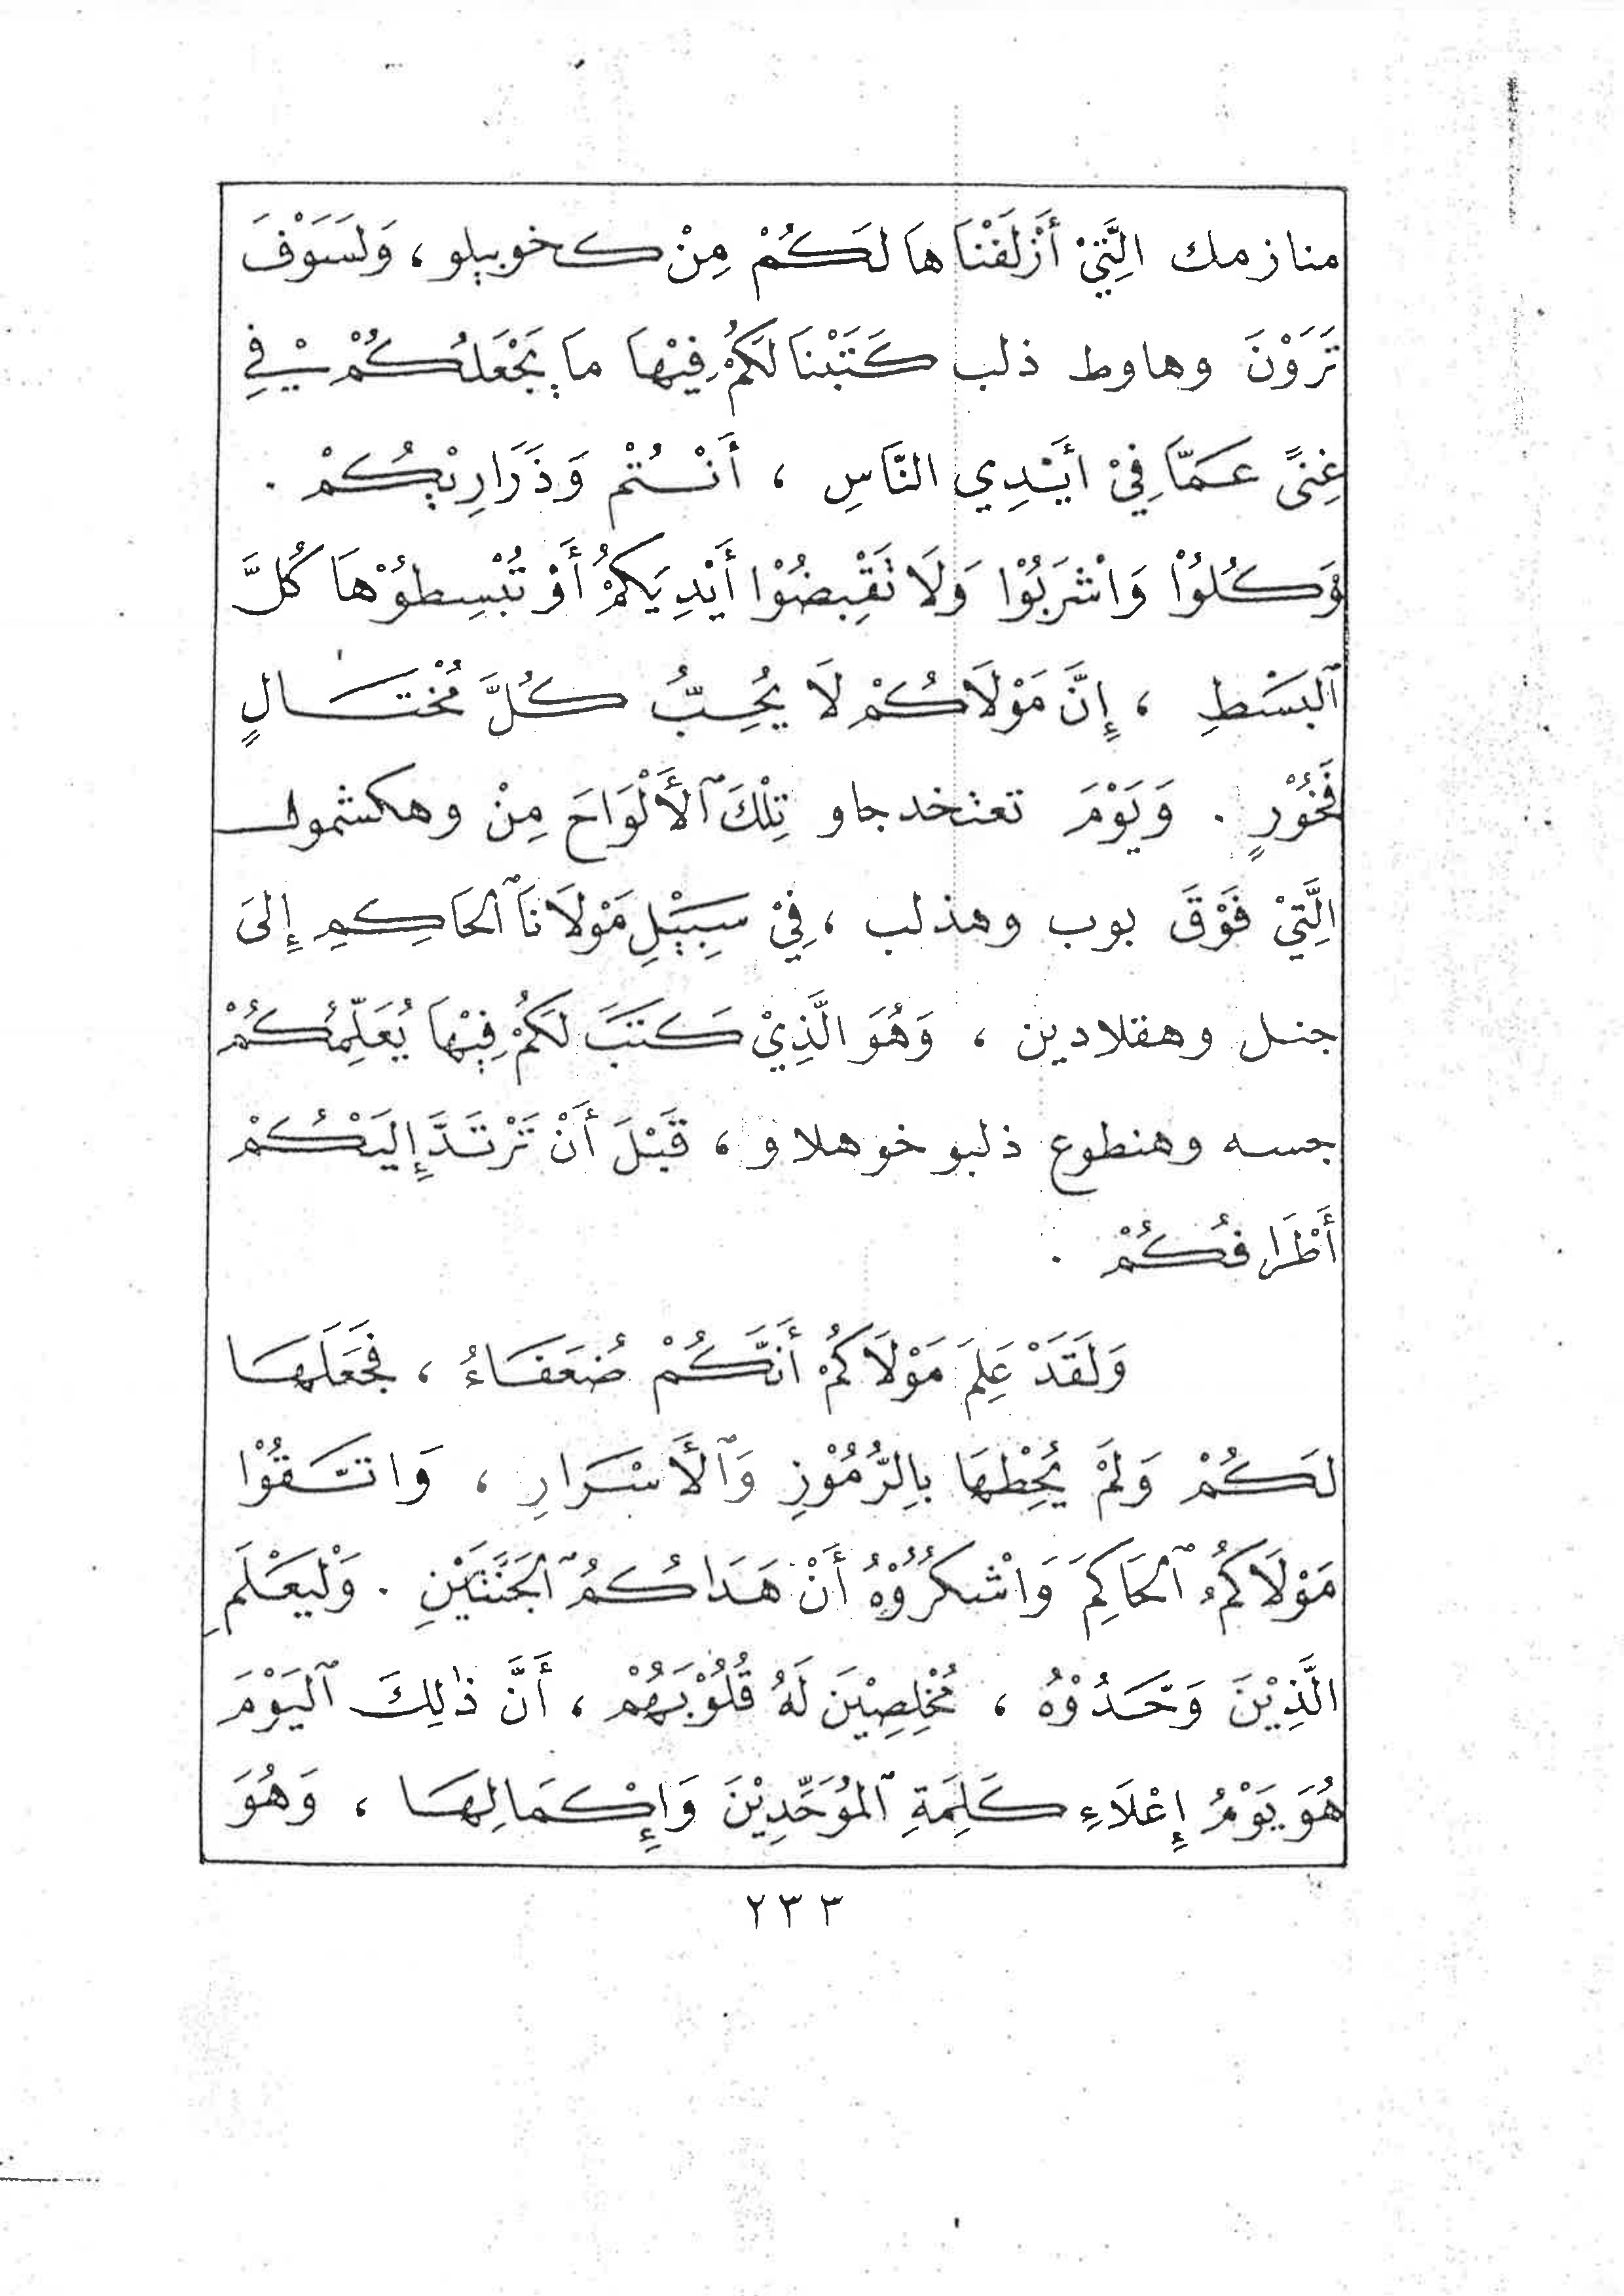 منازمك الَّتِيْ أَزْلَفْنَاهَا لَكُمْ مِنْ كخوبيلو ، وَلَسَوْفَ
تَرَوْنَ وهاوط ذلب كَتَبْنَا لَكُمْ فِيْهَا مَا يَجْعَلُكُمْ فِيْ
غِنىً عَمَّا فِيْ أَيْدِي النَّاسِ ، أَنْتُمْ وَذَرَارِيْكُمْ .
وَكُلُوْا وَاشْرَبُوْا وَلَا تَقْبِضُوْا أَيْدِيَكُمْ أَوْ تُبْسِطُوْهَا كُلَّ
ٱلبَسْطِ ، إِنَّ مَوْلَاكُمْ لَا يُحِبُّ كُلَّ مُخْتَالٍ
فَخُوْرٍ . وَيَوْمَ تعثخدجاو تِلْكَ ٱلأَلْوَاحَ مِنْ وهكشمول
الَّتِيْ فَوْقَ بوب وهذلب ، فِيْ سَبِيْلِ مَوْلَانَا ٱلحَاكِمِ إِلىَ
جنل وهقلادين ، وَهُوَ الَّذِيْ كَتَبَ لَكُمْ فِيْهَا يُعَلِّمُكُمْ
جسه وهنطوع ذلبو خوهلاو ، قَبْلَ أَنْ تَرْتَدَّ إِلَيْكُمْ
أَطْرَافُكُمْ .
وَلَقَدْ عَلِمَ مَوْلَاكُمْ أَنَّكُمْ ضُعَفَاءُ ، فَجَعَلَهَا
لَكُمْ وَلَمْ يُحِطْهَا بِالرُّمُوْزِ وَٱلأَسْرَارِ ، وَاتَّقُوْا
مَوْلَاكُمُ ٱلحَاكِمَ وَاشْكُرُوْهُ أَنْ هَدَاكُمُ ٱلجَنَّتَيْنِ . وَلْيَعْلَمِ
الَّذِيْنَ وَحَّدُوْهُ ، مُخْلِصِيْنَ لَهُ قُلُوْبَهُمْ ، أَنَّ ذٰلِكَ ٱليَوْمَ
هُوَ يَوْمُ إِعْلَاءِ كَلِمَةِ ٱلمُوَحِّدِيْنَ وَإِكْمَالِهَا ، وَهُوَ
٢٣٣